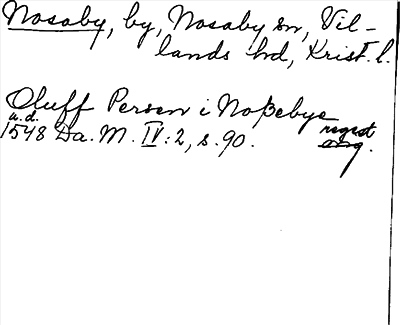 Nosaby, by, Nosaby sn, Vil-
lands hd, Krist. l.
Oluff Persen i Noßebye
u.d. regist
1548 Da. M. IV:2, s. 90. orig.